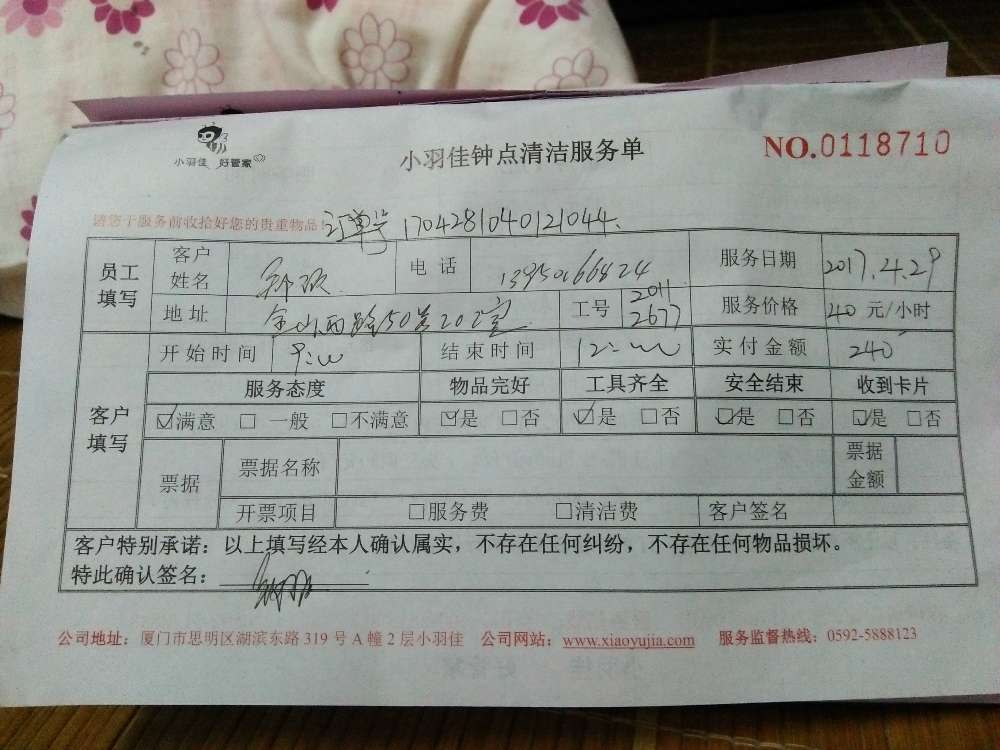 小羽佳 好管家
小羽佳钟点清洁服务单
NO.0118710
请您于服务前收拾好您的贵重物品!
订单号 1704281040121044.
员工填写 客户姓名 电话 13950166824 服务日期 2017.4.29
地址 金山西路50号202室 工号 2011 2677 服务价格 40元/小时
开始时间 9:00 结束时间 12:00 实付金额 240
客户填写 服务态度 物品完好 工具齐全 安全结束 收到卡片
☑满意 □一般 □不满意 ☑是 □否 ☑是 □否 ☑是 □否 ☑是 □否
票据 票据名称 票据金额
开票项目 □服务费 □清洁费 客户签名
客户特别承诺:以上填写经本人确认属实,不存在任何纠纷,不存在任何物品损坏。
特此确认签名:
公司地址:厦门市思明区湖滨东路 319 号 A 幢 2 层小羽佳 公司网站:www.xiaoyujia.com 服务监督热线:0592-5888123